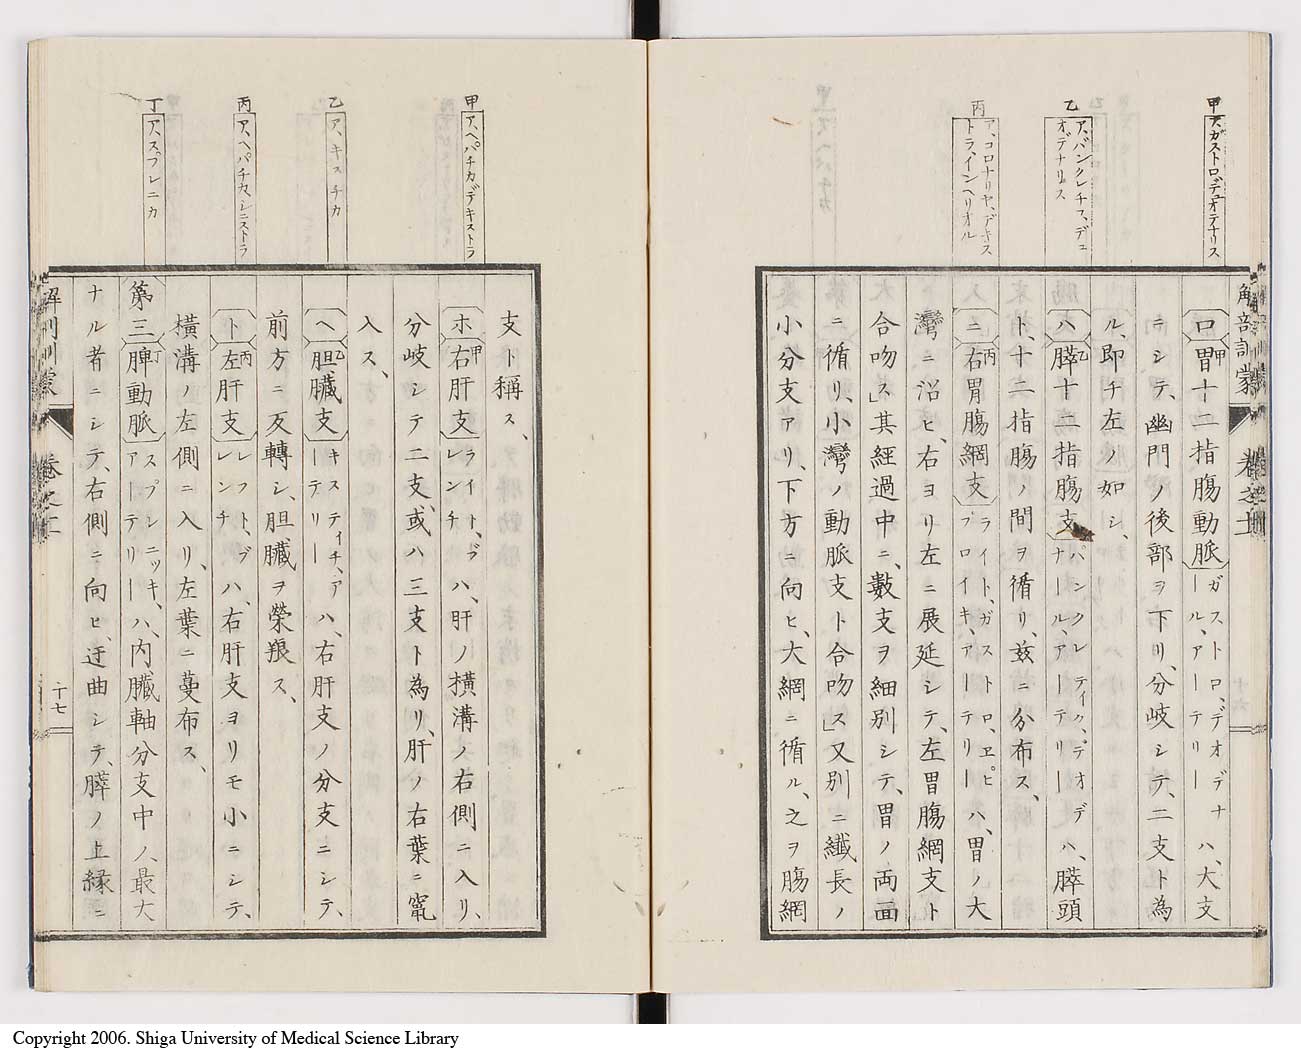 甲 ア、ガストロ、デュオデナリス
乙 ア、パンクレチコ、デュ
オデナリス
丙 ア、コロナリヤ、デキス
トラ、インヘリオル
解剖訓蒙
巻之十
十六
ロ 胃十二指腸動脈 甲 ガストロ、デオデナール、アーテリー ハ、大支
ニシテ、幽門ノ後部ヲ下リ、分岐シテ、二支ト為
ル、即チ左ノ如シ、
ハ 膵十二指腸支 乙 パンクレティク、デオデナール、アーテリー ハ、膵頭
ト、十二指腸ノ間ヲ循リ、玆ニ分布ス、
ニ 右胃腸網支 丙 ライト、ガストロ、ヱピプロイキ、アーテリー ハ、胃ノ大
彎ニ沿ヒ、右ヨリ左ニ展延シテ、左胃腸網支ト
合吻ス」其経過中ニ、數支ヲ細別シテ、胃ノ両面
ニ循リ、小彎ノ動脈支ト合吻ス」又別ニ纖長ノ
小分支アリ、下方ニ向ヒ、大網ニ循ル、之ヲ腸網
甲 ア、ヘパチカ、デキストラ
乙 ア、キスチカ
丙 ア、ヘパチカ、シニストラ
丁 ア、スプレニカ
支ト稱ス、
ホ 右肝支 甲 ライト、ブレンチ ハ、肝ノ横溝ノ右側ニ入リ、
分岐シテ二支、或ハ三支ト為リ、肝ノ右葉ニ竄
入ス、
ヘ 胆臓支 乙 キスティチ、アーテリー ハ、右肝支ノ分支ニシテ、
前方ニ反轉シ、胆臓ヲ榮粮ス、
ト 左肝支 丙 レフト、ブレンチ ハ、右肝支ヨリモ小ニシテ、
横溝ノ左側ニ入リ、左葉ニ蔓布ス、
第三 脾動脈 丁 スプンニッキ、アーテリー ハ、内臓軸分支中ノ、最大
ナル者ニシテ、右側ニ向ヒ、迂曲シテ、膵ノ上縁ニ
解剖訓蒙
巻之十
十七
Copyright 2006. Shiga University of Medical Science Library